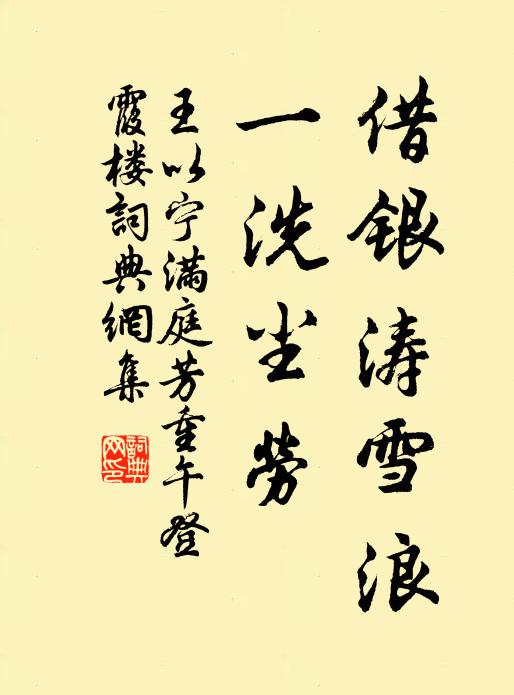 借银涛雪浪
一洗尘劳
王以宁满庭芳重午登
霞楼词典网集
词典
网印